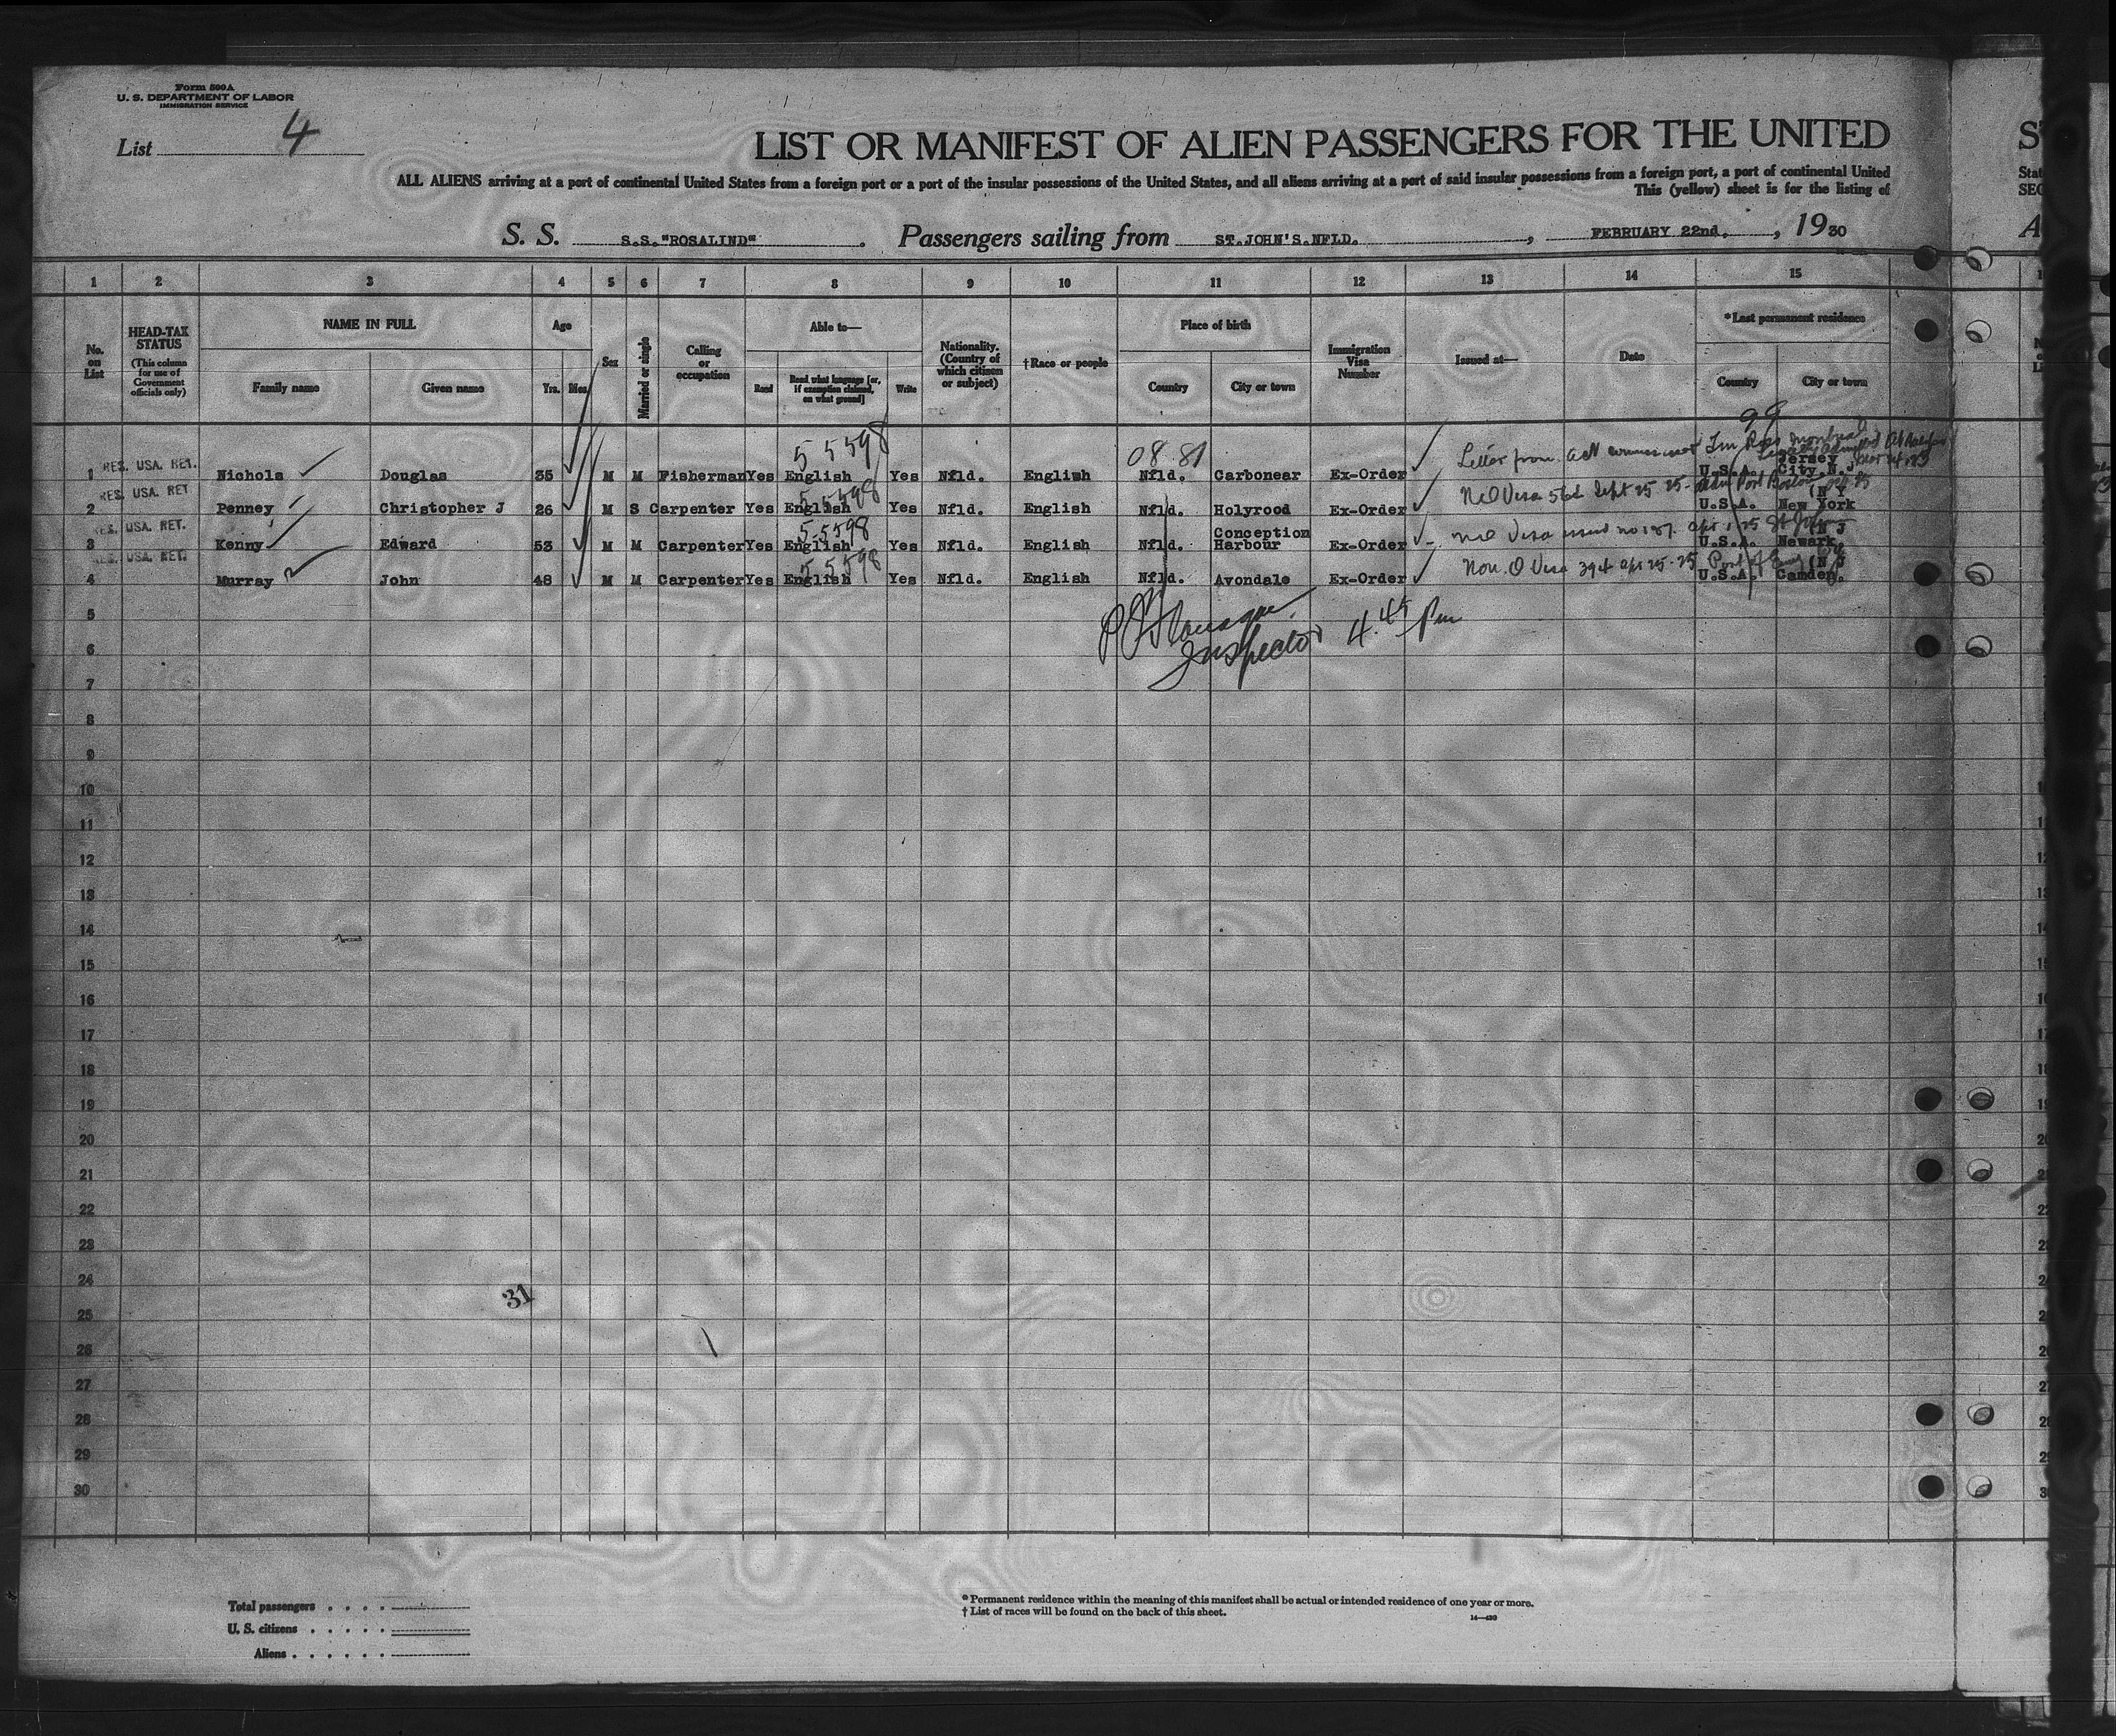 Form 500A
U. S. DEPARTMENT OF LABOR
IMMIGRATION SERVICE
List 4
LIST OR MANIFEST OF ALIEN PASSENGERS FOR THE UNITED
ALL ALIENS arriving at a port of continental United States from a foreign port or a port of the insular possessions of the United States, and all aliens arriving at a port of said insular possessions from a foreign port, a port of continental United
This (yellow) sheet is for the listing of
S. S. S.S."ROSALIND" . Passengers sailing from ST.JOHN'S.NFLD. , FEBRUARY 22nd. , 19 30
1 2 3 4 5 6 7 8 9 10 11 12 13 14 15
No. on List
HEAD-TAX STATUS
(This column for use of Government officials only)
NAME IN FULL
Family name
Given name
Age
Yrs.
Mos.
Sex
Married or single
Calling or occupation
Able to—
Read
Read what language [or, if exemption claimed, on what ground]
Write
Nationality. (Country of which citizen or subject)
†Race or people
Place of birth
Country
City or town
Immigration Visa Number
Issued at—
Date
*Last permanent residence
Country
City or town
99
55598
08.81
Letter from
1 RES. USA. RET. Nichols Douglas 35 M M Fisherman Yes English Yes Nfld. English Nfld. Carbonear Ex-Order U.S.A. Jersey City N.J
55598
2 RES. USA. RET Penney Christopher J 26 M S Carpenter Yes English Yes Nfld. English Nfld. Holyrood Ex-Order U.S.A. New York (N Y
Sept 25 25
55598
3 RES. USA. RET. Kenny Edward 53 M M Carpenter Yes English Yes Nfld. English Nfld. Conception Harbour Ex-Order U.S.A. Newark (N J
Visa issued no 187. apr 1/25 St John
55598
4 RES. USA. RET. Murray John 48 M M Carpenter Yes English Yes Nfld. English Nfld. Avondale Ex-Order U.S.A. Camden. (N J
Non. Q Visa
5
Inspector 4.45 Pm
6
7
8
9
10
11
12
13
14
15
16
17
18
19
20
21
22
23
24
31
25
26
27
28
29
30
Total passengers
U. S. citizens
Aliens
* Permanent residence within the meaning of this manifest shall be actual or intended residence of one year or more.
† List of races will be found on the back of this sheet.
14—430